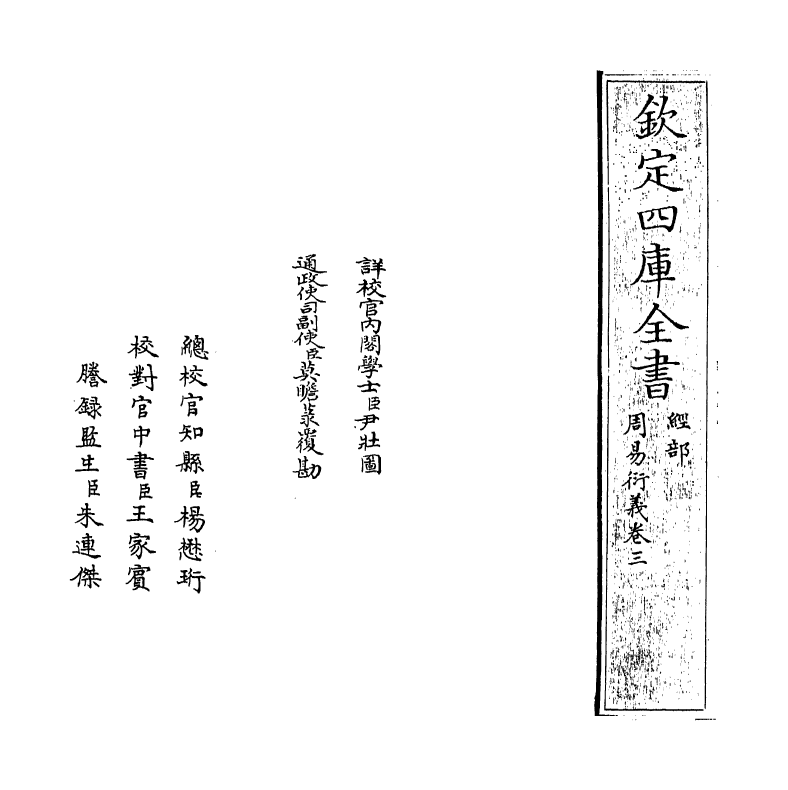 欽定四庫全書
經部
周易衍義卷三
詳校官內閣學士臣尹壯圖
通政使司副使臣莫瞻菉覆勘
總校官知縣臣楊懋珩
校對官中書臣王家賓
謄録監生臣朱連傑